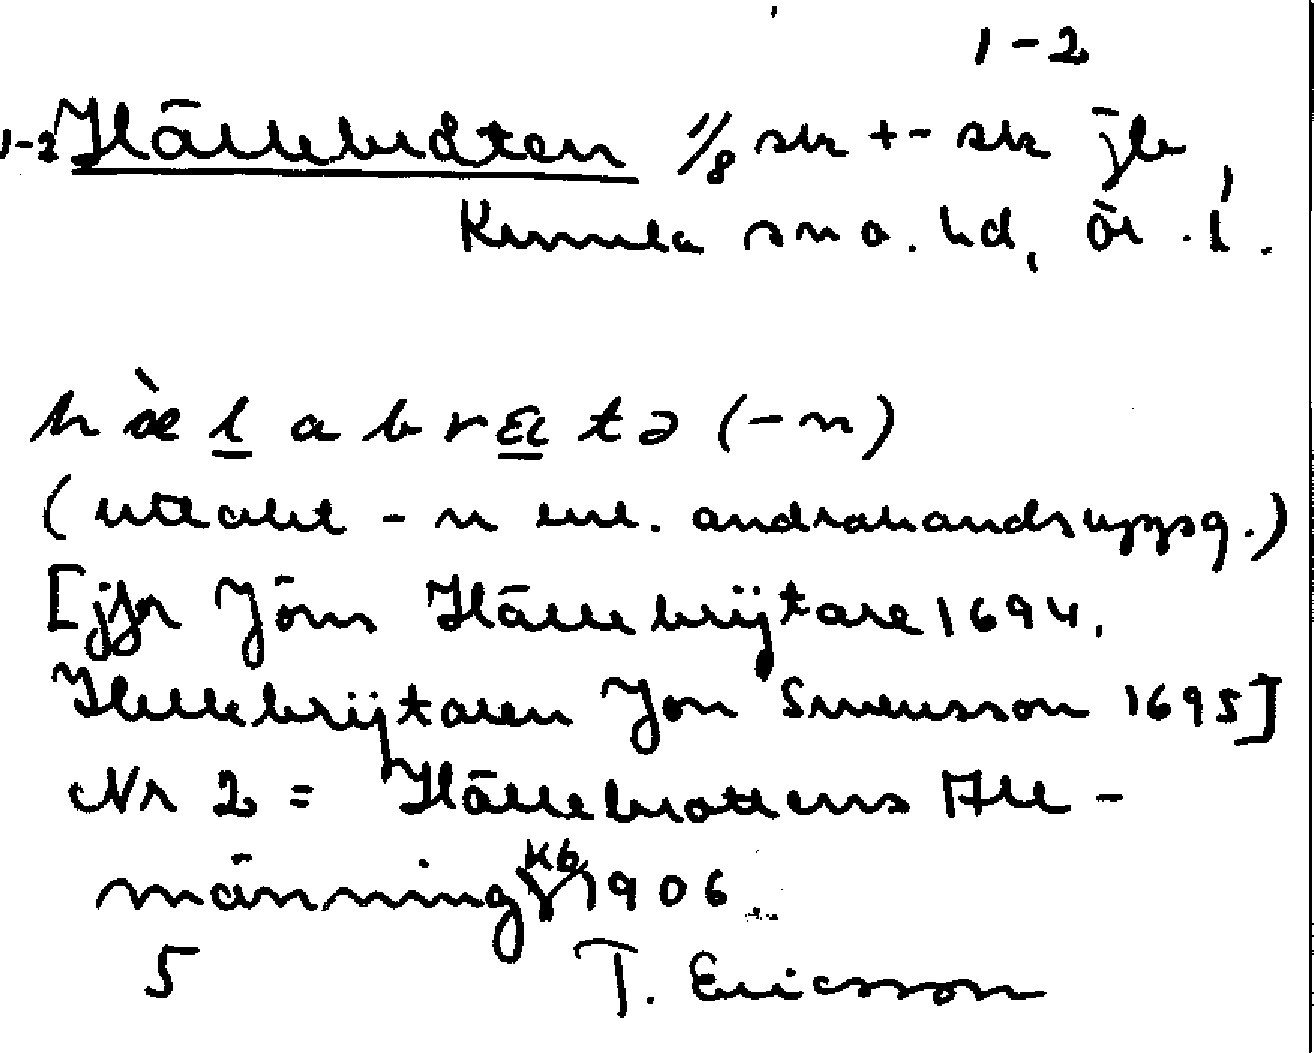 1-2
1-2 Hällebråten 1/8 sk +- sk jb,
Kumla sn o. hd, Ör. l.
h æ̀ l a b r a t ə (-n)
(uttalet -n enl. andrahandsuppg.)
[jfr Jöns Hällebrijtare 1694,
Hellebrijtaren Jon Swensson 1695]
Nr 2 = Hällebrottens All-
männing Kb 1906
5 T. Ericsson